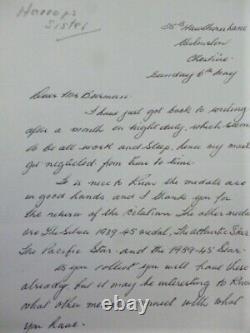 Harrop's
Sister
35 Hawthorn Lane
Wilmslow
Cheshire
Sunday 6th May
Dear Mr Boorman
I have just got back to writing
after a month on night duty, which seem
to be all work and sleep, hence my mail
got neglected from time to time.
It is nice to know the medals are
in good hands and I thank you for
the return of the citation. The other medals
are The Silver 1939-45 medal, The Atlantic Star
The Pacific Star and the 1939-45 Star.
As you collect you will have these
already but it may be interesting to know
what other medals with what
you have.